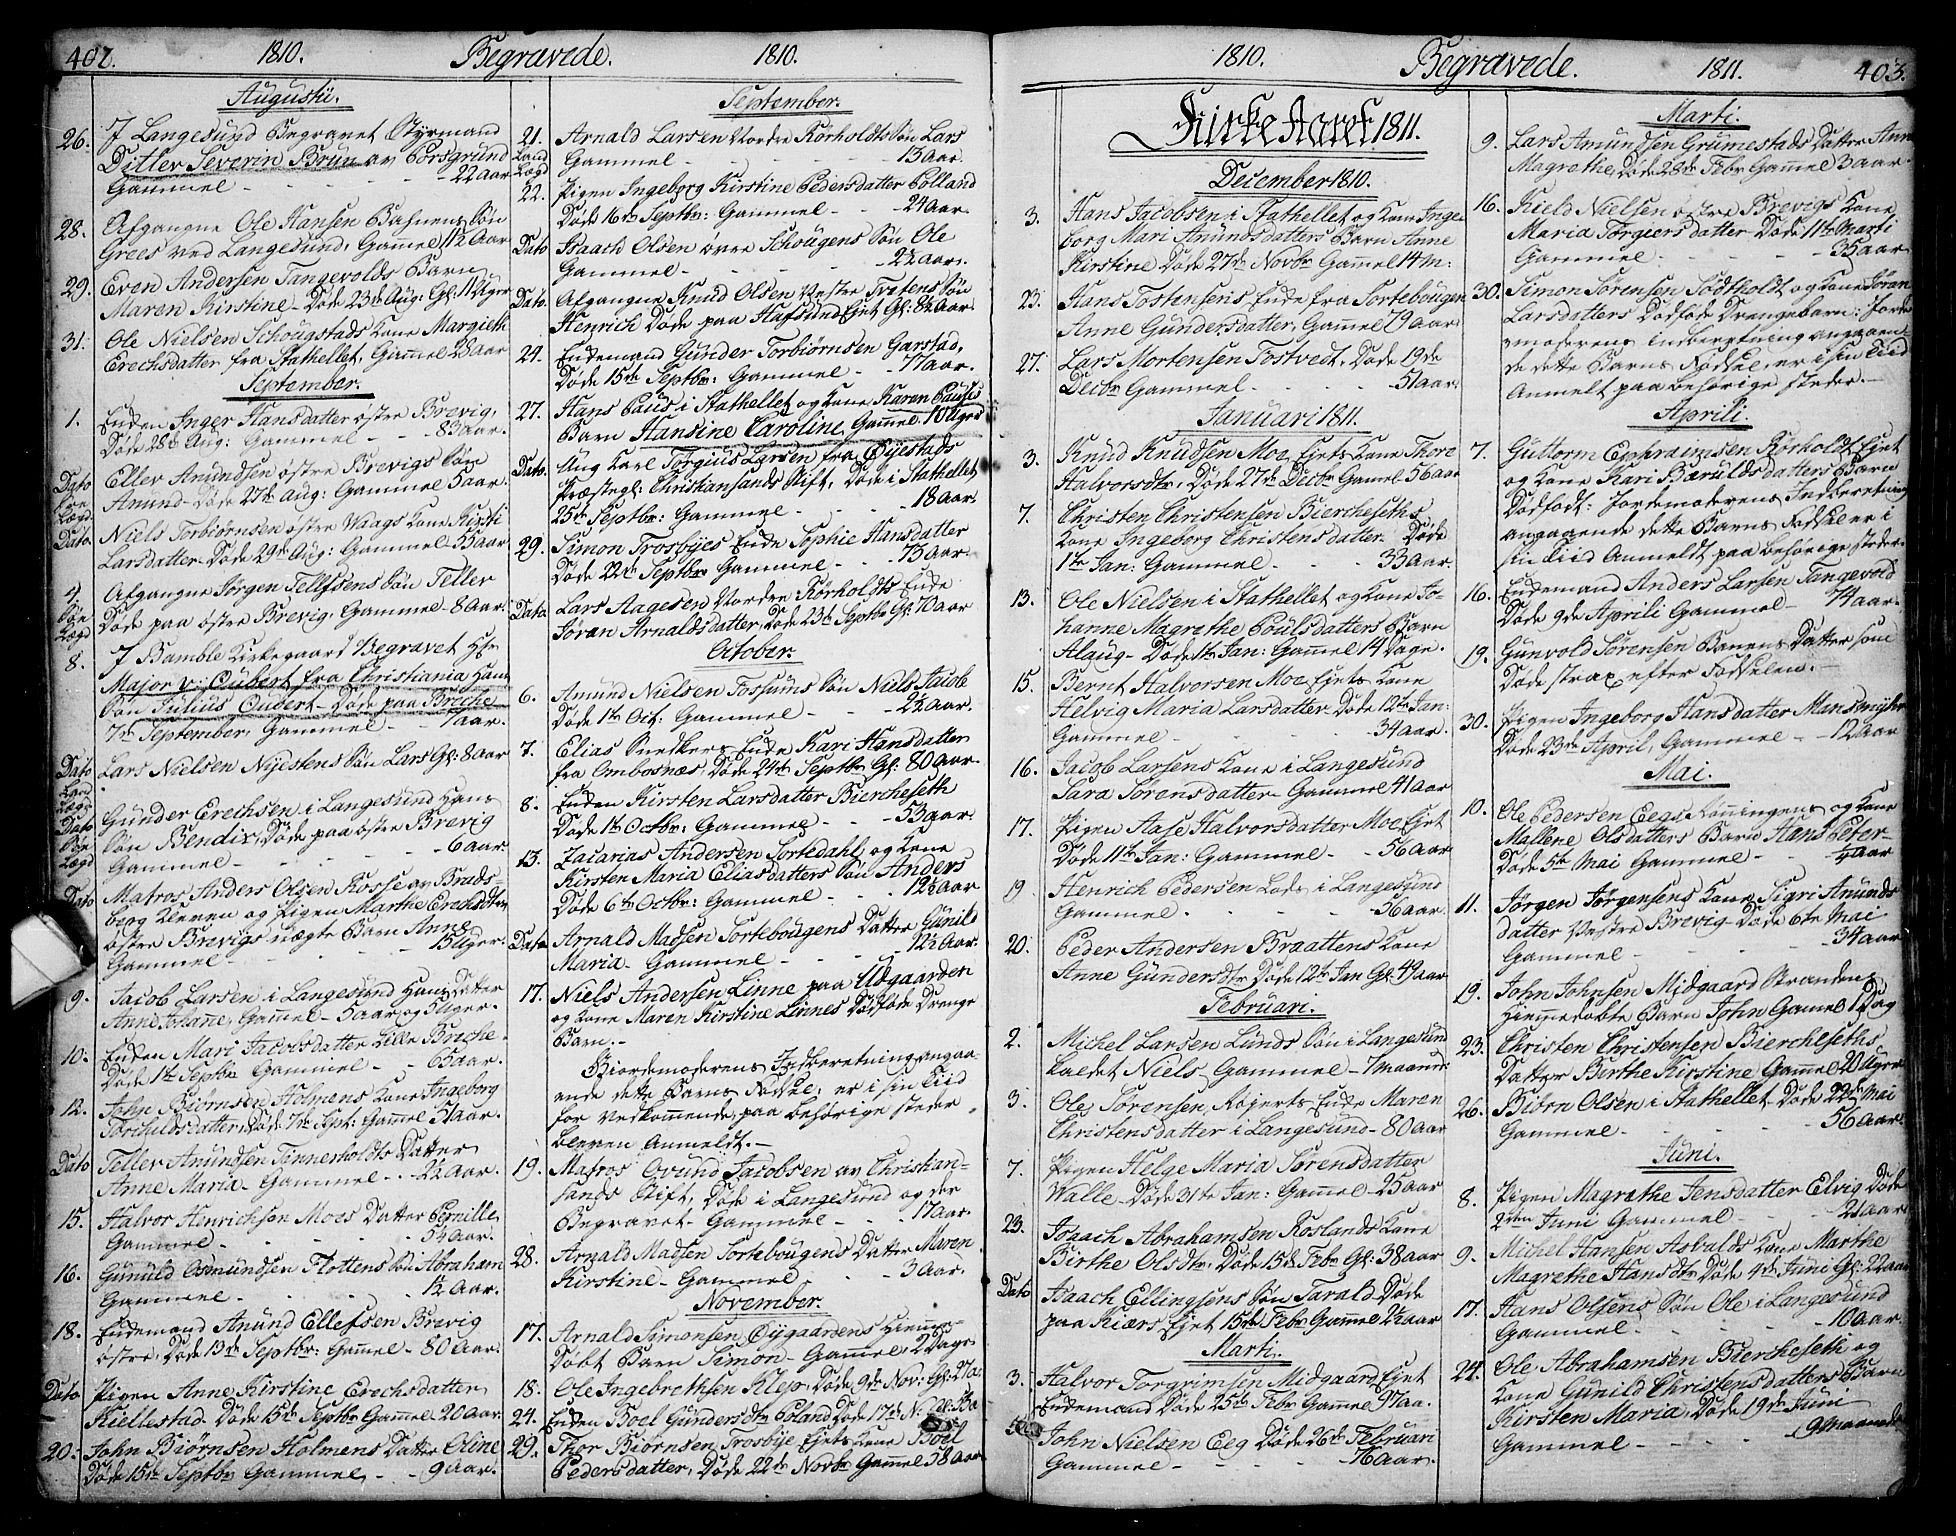 402. 1810. Begravede. 1810.
Augustii.
26. I Langesund Begravet Styrmand
Ditlev Severin Brun av Porsgrund
Gammel - - - 22 Aar
28. Afgangne Ole Hansen Bahnens Søn
Grees ved Langesund, Gamel 1½ Aar
29. Even Andersen Tangevolds Barn
Maren Kirstine - Døde 23de Aug: Gl: 11 Uger
31. Ole Nielsen Schougstads Kone Margieth
Erechsdatter fra Stathellet, Gamel 28 Aar
September.
1. Enken Inger Hansdatter østre Brevig,
Døde 28de Aug: Gammel - - 83 Aar.
Dato Eller Amundsen østre Brevigs Søn
Amund - Døde 27de Aug: Gammel 3 aar.
Dato Niels Torbiørnsen østre Waags Kone Kirsti
Larsdatter - Døde 29de Aug: Gammel 55 aar
4. Afgangne Jørgen Tellefsens Søn Teller
Døde paa østre Brevig, Gammel - 8 Aar.
8. I Bamble Kirkegaard Begravet Hr
Major v: Cubert fra Christiania Hans
Søn Julius Cudert - Døde paa Broche
7de September, Gammel - 7 aar.
Dato Lars Nielsen Nystens Søn Lars Gl: 8 aar
Dato Gunder Erechsen i Langesund Hans
Søn Bendix, Døde paa østre Brevig
Gammel - - - 6 aar
Dato Matros Anders Olsen Rosse av Brads-
berg Kleven og Pigen Marthe Erechsdtr
østre Brevigs uægte Barn Anne
Gammel - - - 15 Uger.
9. Jacob Larsen i Langesund Hans Datter
Anne Johane, Gamel - 5 aar og 3 Uger.
10. Enken Mari Jacobsdatter Lille Broche.
Døde 1te Septbr Gammel - - 65 aar.
12. John Biørnsen Holmens Kone Ingeborg
Torchildsdatter, Døde 7de Sept: Gamel 51 aar.
Dato Teller Amundsen Tinnerholdts Datter
Anne Maria - Gammel - - 2½ Aar.
15. Halvor Henrichsen Moes Datter Pernille,
Gammel - - - 5¼ Aar.
16. Gunuld Osmundsen Flottens Søn Abraham
Gammel - - - 1½ Aar.
18. Enkemand Anund Ellefsen Brevig
østre, Døde 13de Septbr: Gamel - 80 Aar.
Dato Pigen Anne Kirstine Erechsdatter
Kiellestad - Døde 15de Septbr Gamel 20 Aar.
20. John Biørnsen Holmens Datter Eline
Døde 15de Septbr Gammel - - 9 Aar.
September.
21. Arnald Larsen Nordre Rørholdts Søn Lars
Gammel - - - 13 Aar.
22. Pigen Ingeborg Kirstine Pedersdatter Polland
Døde 16de Septbr: Gammel - - 24 Aar.
Dato Isaach Olsen øvre Schougens Søn Ole
Gammel - - - 2½ Aar.
Dato. Afgangne Knud Olsen Vestre Tvetens Søn
Henrich Døde paa Hafsund Eiet Gl: 8½ Aar
24. Enkemand Gunder Torbiørnsen Garstad,
Døde 15de Septbr: Gammel - - 77 Aar.
27. Hans Paus i Stathellet og Kone Karen Pauses
Barn Hansine Caroline, Gamel 10 Uger
Dato. Ung Karl Torgius Larsen fra Øyestads
Præstegl: Christiansands Stift, Døde i Stathellet
25de Septbr: Gammel - - 18 Aar.
29. Simon Trosbyes Enke Sophie Hansdatter
Døde 22de Septbr Gammel - - 73 aar.
Dato Lars Aagesen Nordre Rørholdts Enke
Jøran Arnaldsdatter, Døde 23de Septbr Gl: 70 Aar
October.
6. Amund Nielsen Fossums Søn Niels Jacob
Døde 1te Oct: Gammel - - 2½ aar.
7. Elias Snedkers Enke Kari Hansdatter
fra Ombosnæs, Døde 24de Septbr Gl: 80 Aar.
8. Enken Kirsten Larsdatter Biercheseth
Døde 1te Octbr: Gammel - - 53 aar.
13. Zacarias Andersen Sortedahl, og Kone
Kirsten Maria Eliasdatters Søn Anders
Døde 6te Octbr: Gammel - - 12½ aar
Dato Arnald Madsen Sortebougens Datter Gunild
Maria - Gammel - - 12½ Aar.
17. Niels Andersen Linne paa Uegaarden
og Kone Maren Kirstine Linnes Dødføde Drenge
Barn. -
Biordemoderens Indberetning angaa-
ende dette Barns Fødsel, er i sin Tiid
for Vedkommende paa behørige steder
bleven Anmeldt. -
19. Matros Ovund Jacobsen av Christian-
sands Stift, Døde i Langesund og der
Begravet - Gammel - - 17 Aar.
28. Arnald Madsen Sortebougens Datter Maren
Kirstine - Gammel - - 3 Aar.
November.
17. Arnald Simonsen Øygaardens Hieme-
Døbt Barn Simon - Gammel, 2 Dage.
18. Ole Ingebrethsen Klep, Døde 9de Nov: Gl: 27 aa
24. Enken Boel Gundersdtr Poland Døde 17de N:
29. Thor Biørnsen Trosbye Eyets Kone Boel
Pedersdatter, Døde 22de Novbr Gamel 38 Aar
1810. Begravede. 1811. 403.
Kirke Aaret 1811.
December 1810.
3. Hans Jacobsen i Stathellet og Kone Inge-
borg Mari Anundsdatters Barn Anne
Kirstine Døde 27de Novbr Gamel 14 M:
23. Hans Tostensens Enke fra Sortebougen
Anne Gundersdatter, Gammel 79 Aar
27. Lars Mortensen Tostvedt, Døde 19de
Decbr Gammel - - - 51 Aar.
Januari 1811.
3. Knud Knudsen Moe Eyets Kone Thore
Halvorsdtr, Døde 27de Decbr Gamel 56 Aar
7. Christen Christensen Biercheseths
Kone Ingeborg Christensdatter Døde
1te Jan: Gammel - - 33 Aar.
13. Ole Nielsen i Stathellet og Kone Jo-
hanne Magrethe Poulsdatters Barn
Alaug - Døde 1te Jan: Gamel 14 Dage.
15. Bernt Halvorsen Moe Eyets Kone
Helvig Maria Larsdatter Døde 12te Jan:
Gammel - - - 34 Aar.
16. Jacob Larsens Kone i Langesund
Sara Sørensdatter Gammel 41 Aar
17. Pigen Aase Halvorsdatter Moe Eyet
Døde 11te Jan: Gammel - - 56 Aar
19 Henrich Pedersen Lods i Langesund
Gammel - - - 56 Aar.
20. Peder Andersen Braattens Kone
Anne Gundersdtr Døde 12te Jan Gl: 49 Aar
Februari.
2. Michel Larsen Lunds Søn i Langesund
kaldet Niels Gammel - 7 maaneder
3. Ole Sørensen, Enke Maren
Christensdatter i Langesund - 80 Aar
7. Pigen Helge Maria Sørensdatter
Walle - Døde 31te Jan: Gamel - 23 Aar
23. Isaach Abrahamsen Roslands Kone
Birthe Olsdtr, Døde 15de Febr Gl: 38 Aar
Dato Isaach Ellingsens Søn Tarald Døde
paa Kiærs Eyet 15de Febr Gamel 2½ Aar
Marti.
3. Halvor Torgrimsen Midgaard Eyet
Enkemand Døde 25de Febr Gamel 97 Aa.
John Nielsen Eeg Døde 26de Februari
Gammel - - - 76 Aar.
Marti.
9. Lars Amundsen Grumestads Datter Anne
Magrethe, Døde 28de Febr Gammel 3 Aar.
16. Kield Nielsen østre Brevigs Kone
Maria Torgiersdatter Døde 11te Marti
Gammel - - - 35 Aar
30. Simon Sørensen Sødtholdt og Kone Jøran
Larsdatters Dødføde Drengebarn: Jorde
moderens Indberetning angaaen
de dette Barns Fødsel, er i sin Tiid
Anmelt paa behørige steder. -
Aprili.
7. Guttorm Ephraimsen Rørholdt Eyet
og Kone Kari Baruldsdatters Barn
Dødfødt: Jordemoderens Indberetning
angaaende dette Barns Fødsel er i
sin Tiid Anmeldt paa behørige steder.
16. Enkemand Anders Larsen Tangevold
Døde 9de Aprili Gammel - 74 Aar.
19. Gunvold Sørensen Banens Datter som
Døde strax efter Fødselen. -
30. Pigen Ingeborg Hansdatter Mansmyhr
Døde 23de April, Gammel - - 12 Aar
Mai.
10. Ole Pedersen Eegs Rønningens og Kone
Mallene Olsdatters Barn Hans Peter -
Døde 5te Mai Gammel - - ¼ Aar
11. Jørgen Jørgensens Kone Sigri Anunds
datter Vestre Brevig - Døde 6te Mai
Gammel - - - 34 Aar
19. John Johnsen Midgaard Strandens
Hiemedøbte Barn John Gamel 1 Dag
23. Christen Christensen Biercheseths,
Datter Berthe Kirstine Gamel 20 Uger
26. Biørn Olsen i Stathellet Døde 22de Mai
Gammel - - - 56 Aar.
Juni.
8. Pigen Magrethe Jensdatter Elvig Døde
2den Juni Gammel - - 21 Aar.
9. Michel Hansen Asvalds Kone Marthe
Magrethe Hansdtr Døde 4de Juni Gl: 22 aar
17. Hans Olsens Søn Ole i Langesund
Gammel - - - 10 Aar
24. Ole Abrahamsen Biercheseth og
Kone Gunild Christensdatters Barn
Kirsten Maria, Døde 19de Juni
Gammel - - - 9 maaneder